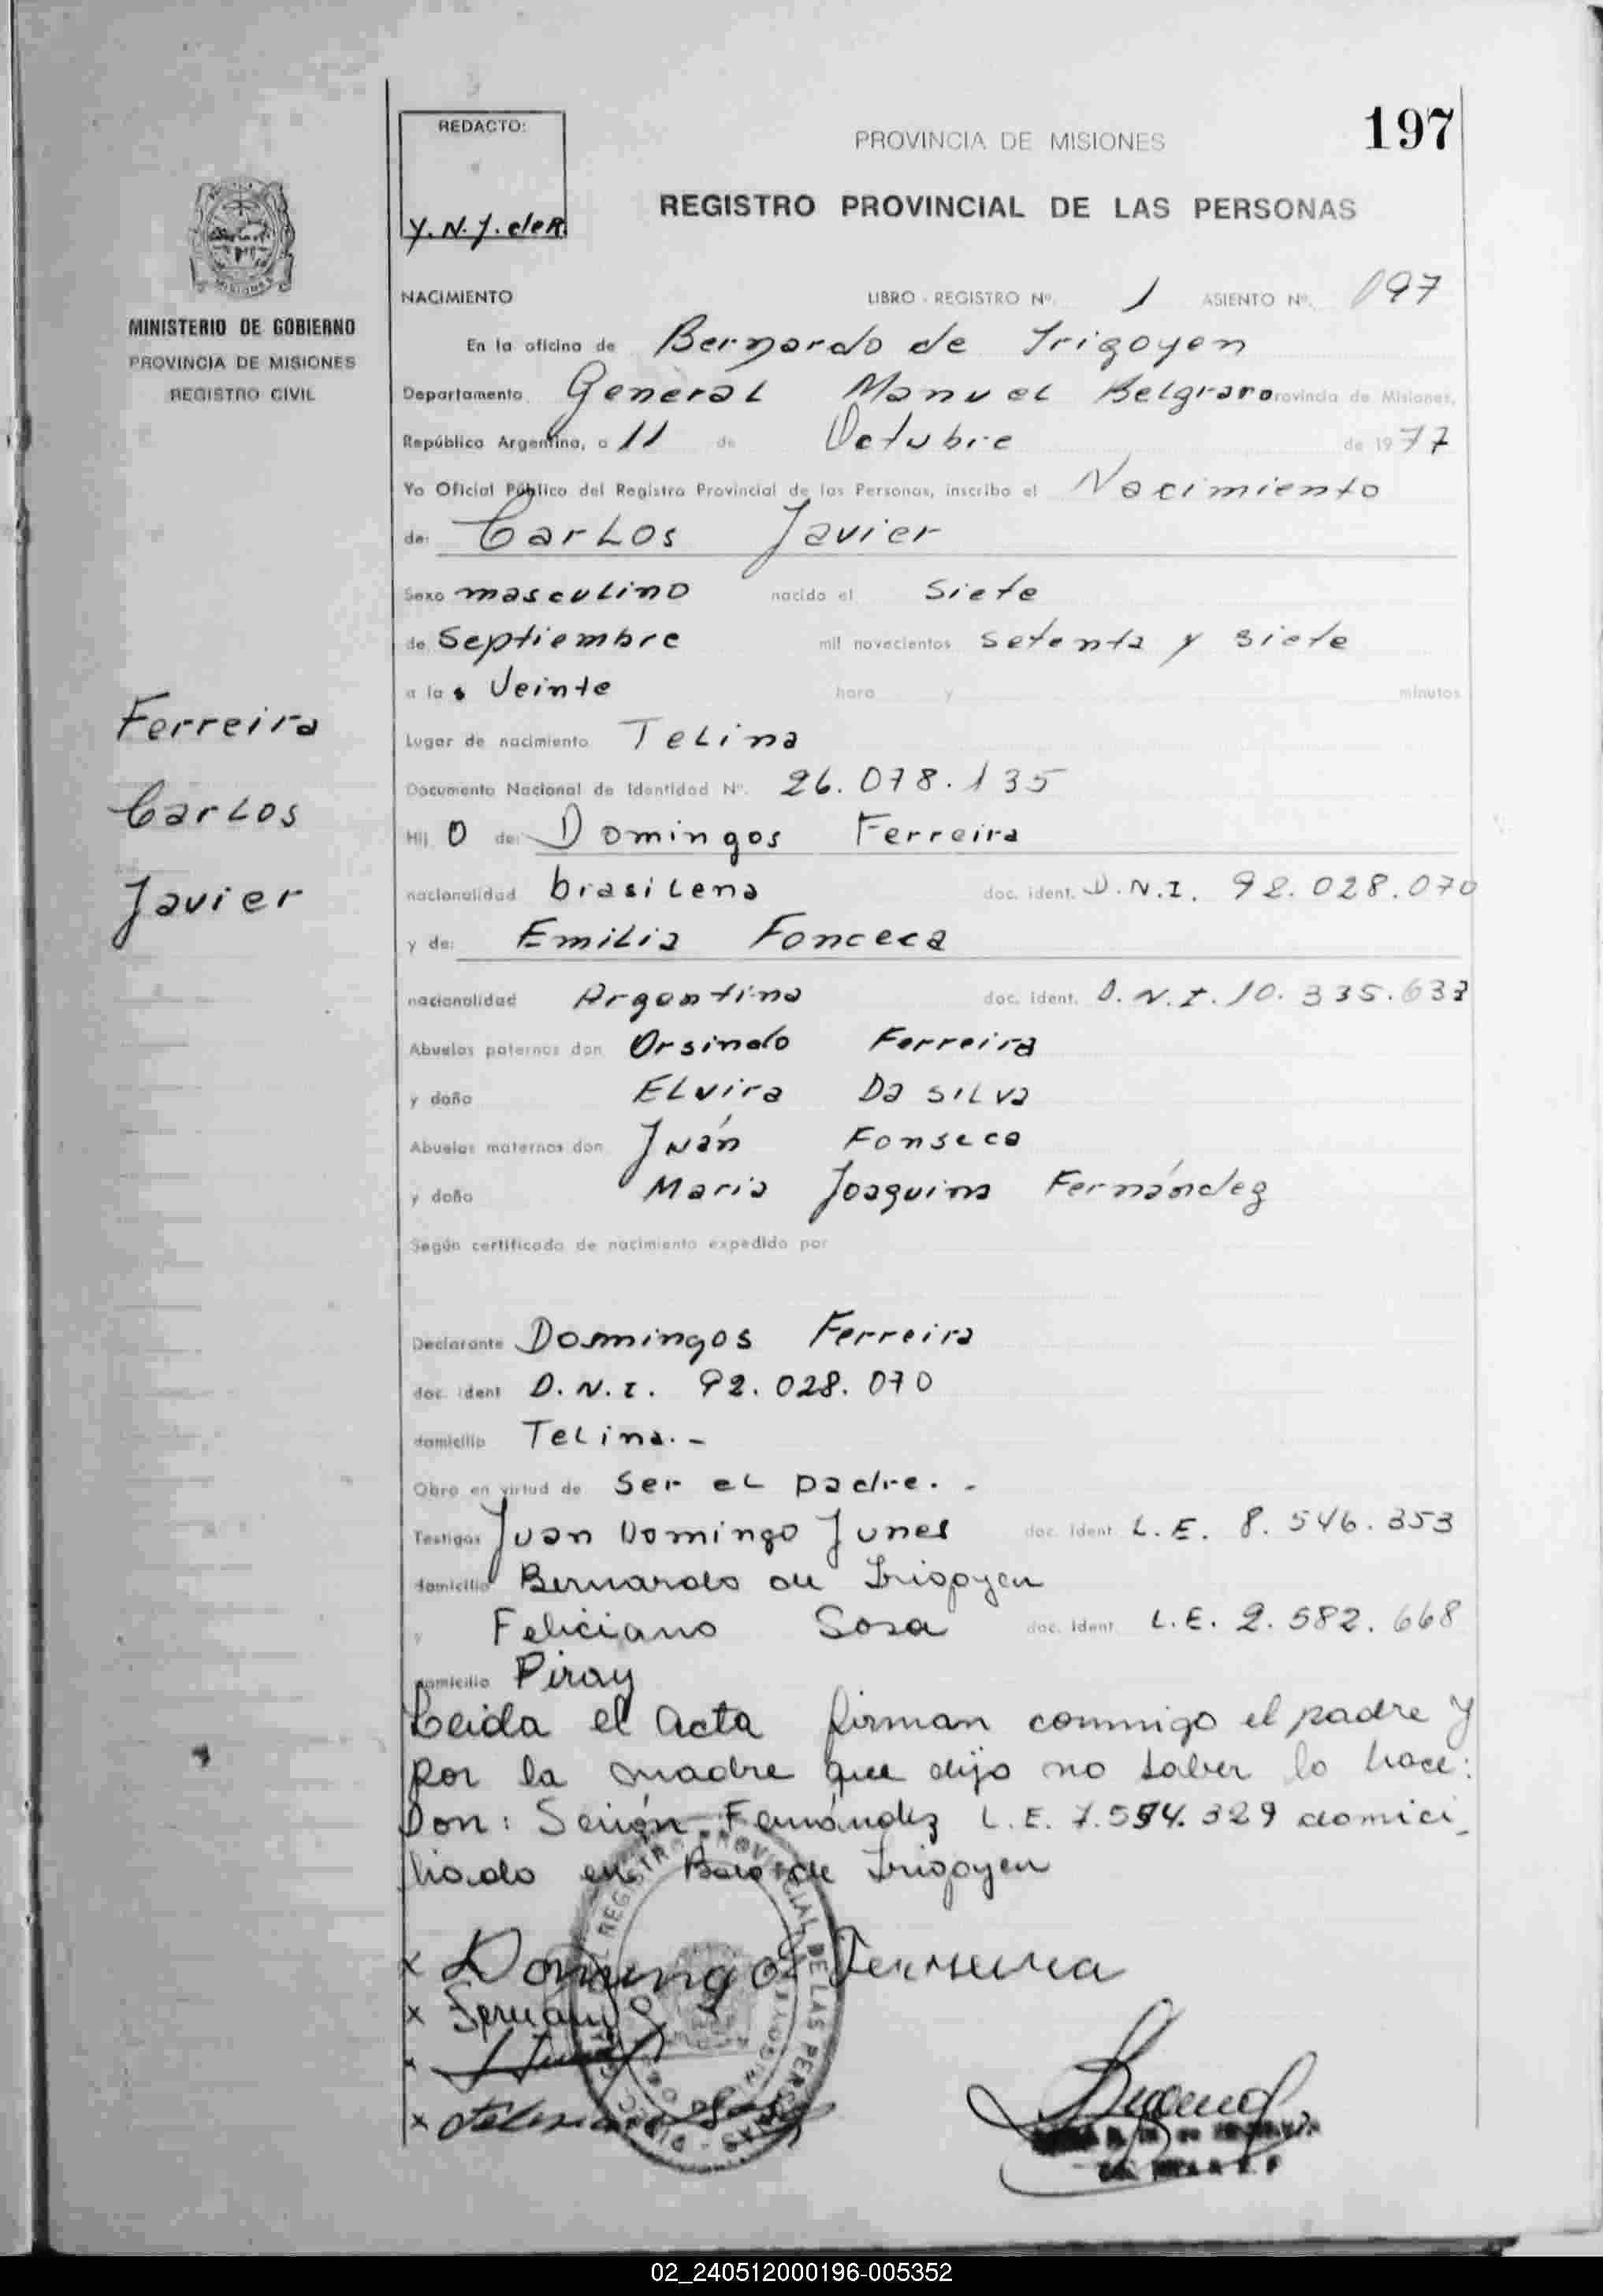 197
REDACTO:
Y. N. J. de R.
PROVINCIA DE MISIONES
REGISTRO PROVINCIAL DE LAS PERSONAS
MISIONES
MINISTERIO DE GOBIERNO
PROVINCIA DE MISIONES
REGISTRO CIVIL
NACIMIENTO LIBRO - REGISTRO Nº. 1 ASIENTO Nº. 197
En la oficina de Bernardo de Irigoyen
Departamento General Manuel Belgrano Provincia de Misiones,
República Argentina, a 11 de Octubre de 1977
Yo Oficial Público del Registro Provincial de las Personas, inscribo el Nacimiento
de: Carlos Javier
Sexo masculino nacido el siete
de Septiembre mil novecientos setenta y siete
a las Veinte hora y minutos
Lugar de nacimiento Telina
Documento Nacional de Identidad Nº. 26.078.135
Hij o de: Domingos Ferreira
nacionalidad brasilena doc. ident. D.N.I. 92.028.070
y de: Emilia Fonceca
nacionalidad Argentina doc. ident. D.N.I. 10.335.633
Abuelos paternos don Orsindo Ferreira
y doña Elvira Da silva
Abuelos maternos don Juán Fonseca
y doña Maria Joaquina Fernández
Según certificado de nacimiento expedido por
Ferreira
Carlos
Javier
Declarante Domingos Ferreira
doc. ident D.N.I. 92.028.070
domicilio Telina. -
Obra en virtud de ser el padre. -
Testigos Juan Domingo Junes doc. ident L.E. 8.546.353
domicilio Bernardo de Irigoyen
y Feliciano Sosa doc. ident L.E. 2.582.668
domicilio Piray
Leida el Acta firman conmigo el padre y
por la madre que dijo no saber lo hace:
Don: Fernández L.E. 7.594.329 domici_
liado en Bdo de Irigoyen
x Domingos Ferreira
x Fernández
x
x Feliciano Sosa
REGISTRO PROVINCIAL DE LAS PERSONAS
02_240512000196-005352